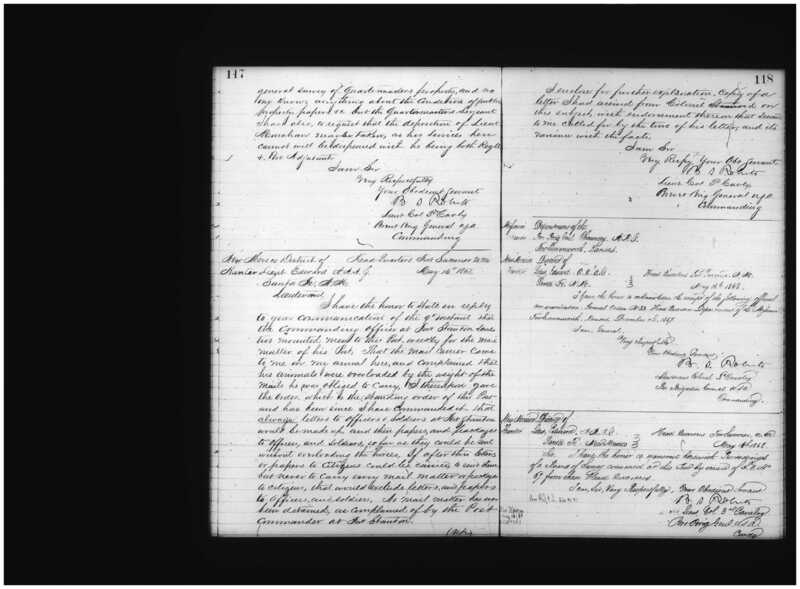 117
general survey of Quartermasters property, and no
one knows anything about the condition of public
property papers &c but the Quartermasters Sergeant
I have also, to request that the deposition of Lieut
may be taken, as his services here
cannot well be dispensed with he being both Regtl
& Post Adjutant
I am Sir
Very Respectfully
Your Obedient Servant
B S Roberts
Lieut Col 3d Cavly
Brevet Brig General USA
Commanding
New Mexico District of
Hunter Lieut Edward A.A.A.G.
Santa Fe N.M.
Head Quarters Fort Sumner N.M.
May 14th 1868
Lieutenant
I have the honor to state in reply
to your communication of the 9th instant that
the Commanding Officer at Fort Stanton sends
two mounted men to this Post, weekly for the mail
matter of his Post. That the Mail Carrier came
to me on my arrival here, and complained that
his animals were overloaded by the weight of the
Mails he was obliged to carry, & I therefore gave
the order, which is the standing order of this Post
and has been since I have Commanded it that
always letters to officers & soldiers at Fort Stanton
would be made up and their papers, and packages
to officers, and soldiers, so far as they could be sent
without overloading the horses. If after this letters
or papers to Citizens could be carried to send them
but never to carry any mail matter or packages
to citizens, that would exclude letters, and papers
to officers, and soldiers. No mail matter has ever
been detained, as complained of by the Post
Commander at Fort Stanton.
118
I enclose for further explanation, Copy of a
letter I had received from Colonel on
this subject, with endorsement thereon that seemed
to me called for by the tone of his letter, and its
variance with the facts.
I am Sir
Very Respfy Your Obt Servant
B S Roberts
Lieut Col 3d Cavly
Brevet Brig General USA
Commanding
Missouri Department of the
Brig Genl Chauncey A.A.G.
Fort Leavenworth, Kansas
New Mexico District of
Hunter Lieut Edward A.A.A.G.
Santa Fe N.M.
Head Quarters Fort Sumner N.M.
May 16th 1868
I have the honor to acknowledge the receipt of the following official
communication General Orders No 33 Head Quarters Department of the Missouri
Fort Leavenworth, Kansas December 1867
I am, General,
Very Respectfully
Your Obedient Servant
B S Roberts
Lieutenant Colonel 3d Cavalry
Bvt Brigadier General U S A
Commanding
New Mexico District of
Hunter Lieut Edward A.A.A.G.
Santa Fe New Mexico
Head Quarters Fort Sumner N.M.
May 1868
Sir I have the honor to transmit herewith Proceedings
of a Board of Survey convened at this Post by virtue of S.O. No
67 from these Head Quarters
I am, Sir, Very Respectfully, Your Obedient Servant
B S Roberts
Lieut Col 3rd Cavalry
Bvt Brig Genl USA
Comdg